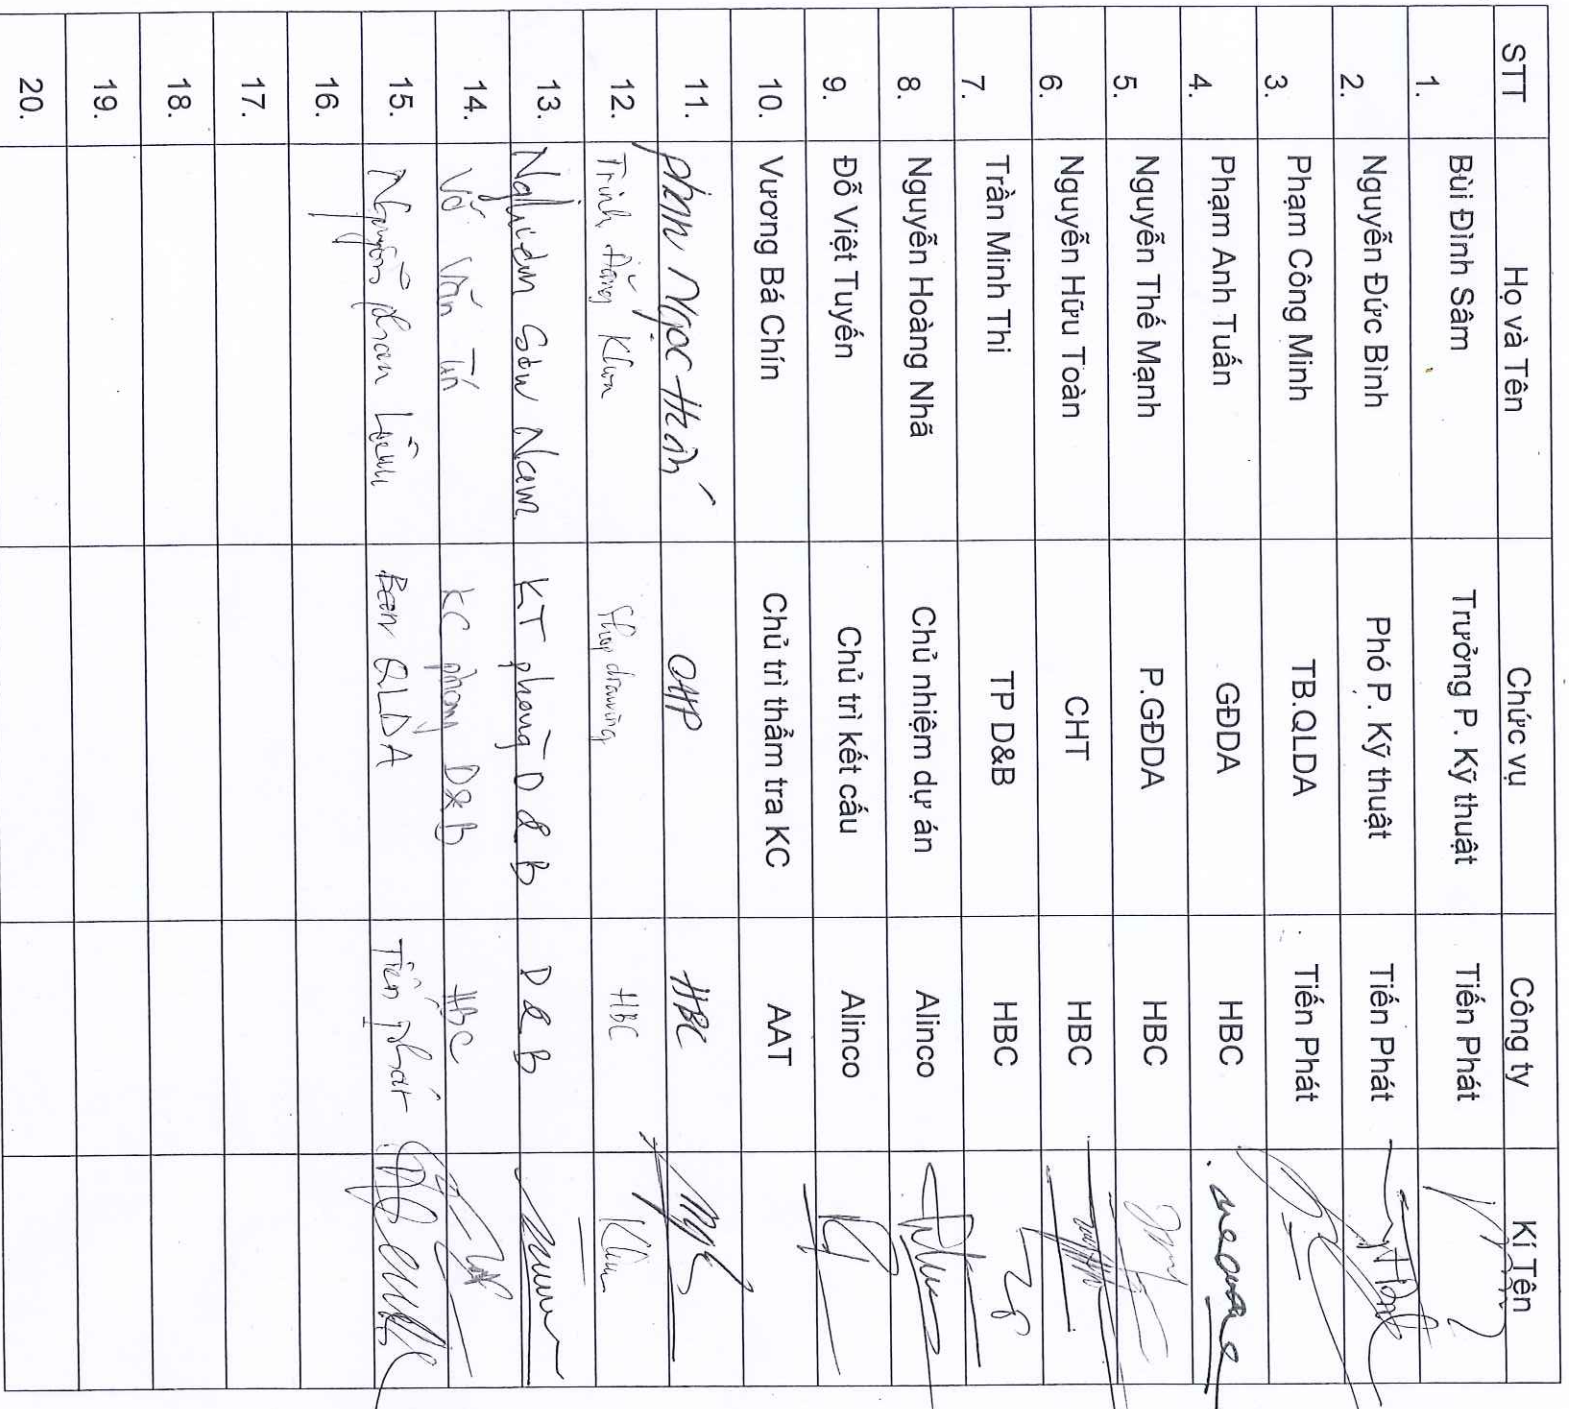 STT Họ và Tên Chức vụ Công ty Kí Tên
1. Bùi Đình Sâm Trưởng P. Kỹ thuật Tiến Phát
2. Nguyễn Đức Bình Phó P. Kỹ thuật Tiến Phát
3. Phạm Công Minh TB.QLDA Tiến Phát
4. Phạm Anh Tuấn GĐDA HBC
5. Nguyễn Thế Mạnh P.GĐDA HBC
6. Nguyễn Hữu Toàn CHT HBC
7. Trần Minh Thi TP D&B HBC
8. Nguyễn Hoàng Nhã Chủ nhiệm dự án Alinco
9. Đỗ Việt Tuyến Chủ trì kết cấu Alinco
10. Vương Bá Chín Chủ trì thẩm tra KC AAT
11. Phan Ngọc HBC
12. Trịnh Đăng Khoa Shop drawing HBC
13. Sơn Nam KT phòng D & B D & B
14. Võ Văn Tín KC phòng D&B HBC
15. Nguyễn Ban QLDA Tiến phát
16.
17.
18.
19.
20.